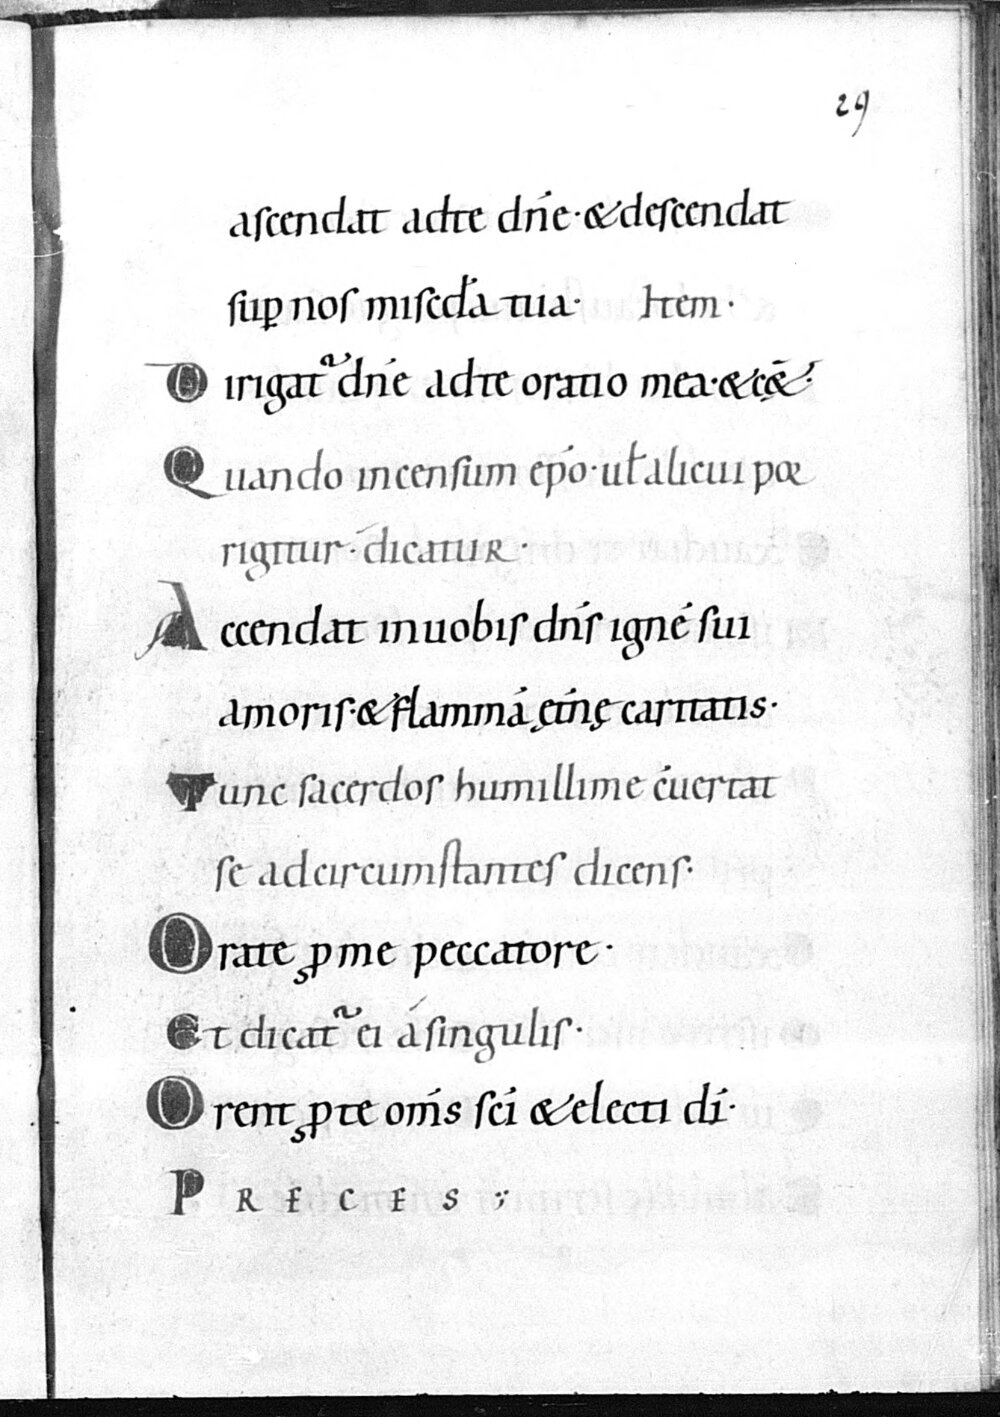 29
ascendat adte dñe·&descendat
sup̱ nos miscd̓a tua· Item·
Dirigat᷑ dñe adte oratio mea·&cę̃&·
Quando incensum ep̅o·ul̓ alicui por
rigitur·dicatur·
Accendat inuobis dñs igné sui
amoris·&flammā ęt̓nę caritatis·
Tunc sacerdos humillime c̄uertat
se adcircumstantes dicens·
Orate ꝓme peccatore·
Et dicat᷑ ei á singulis·
Orent ꝓte om̅s sc̅i &electi dī·
PRECES